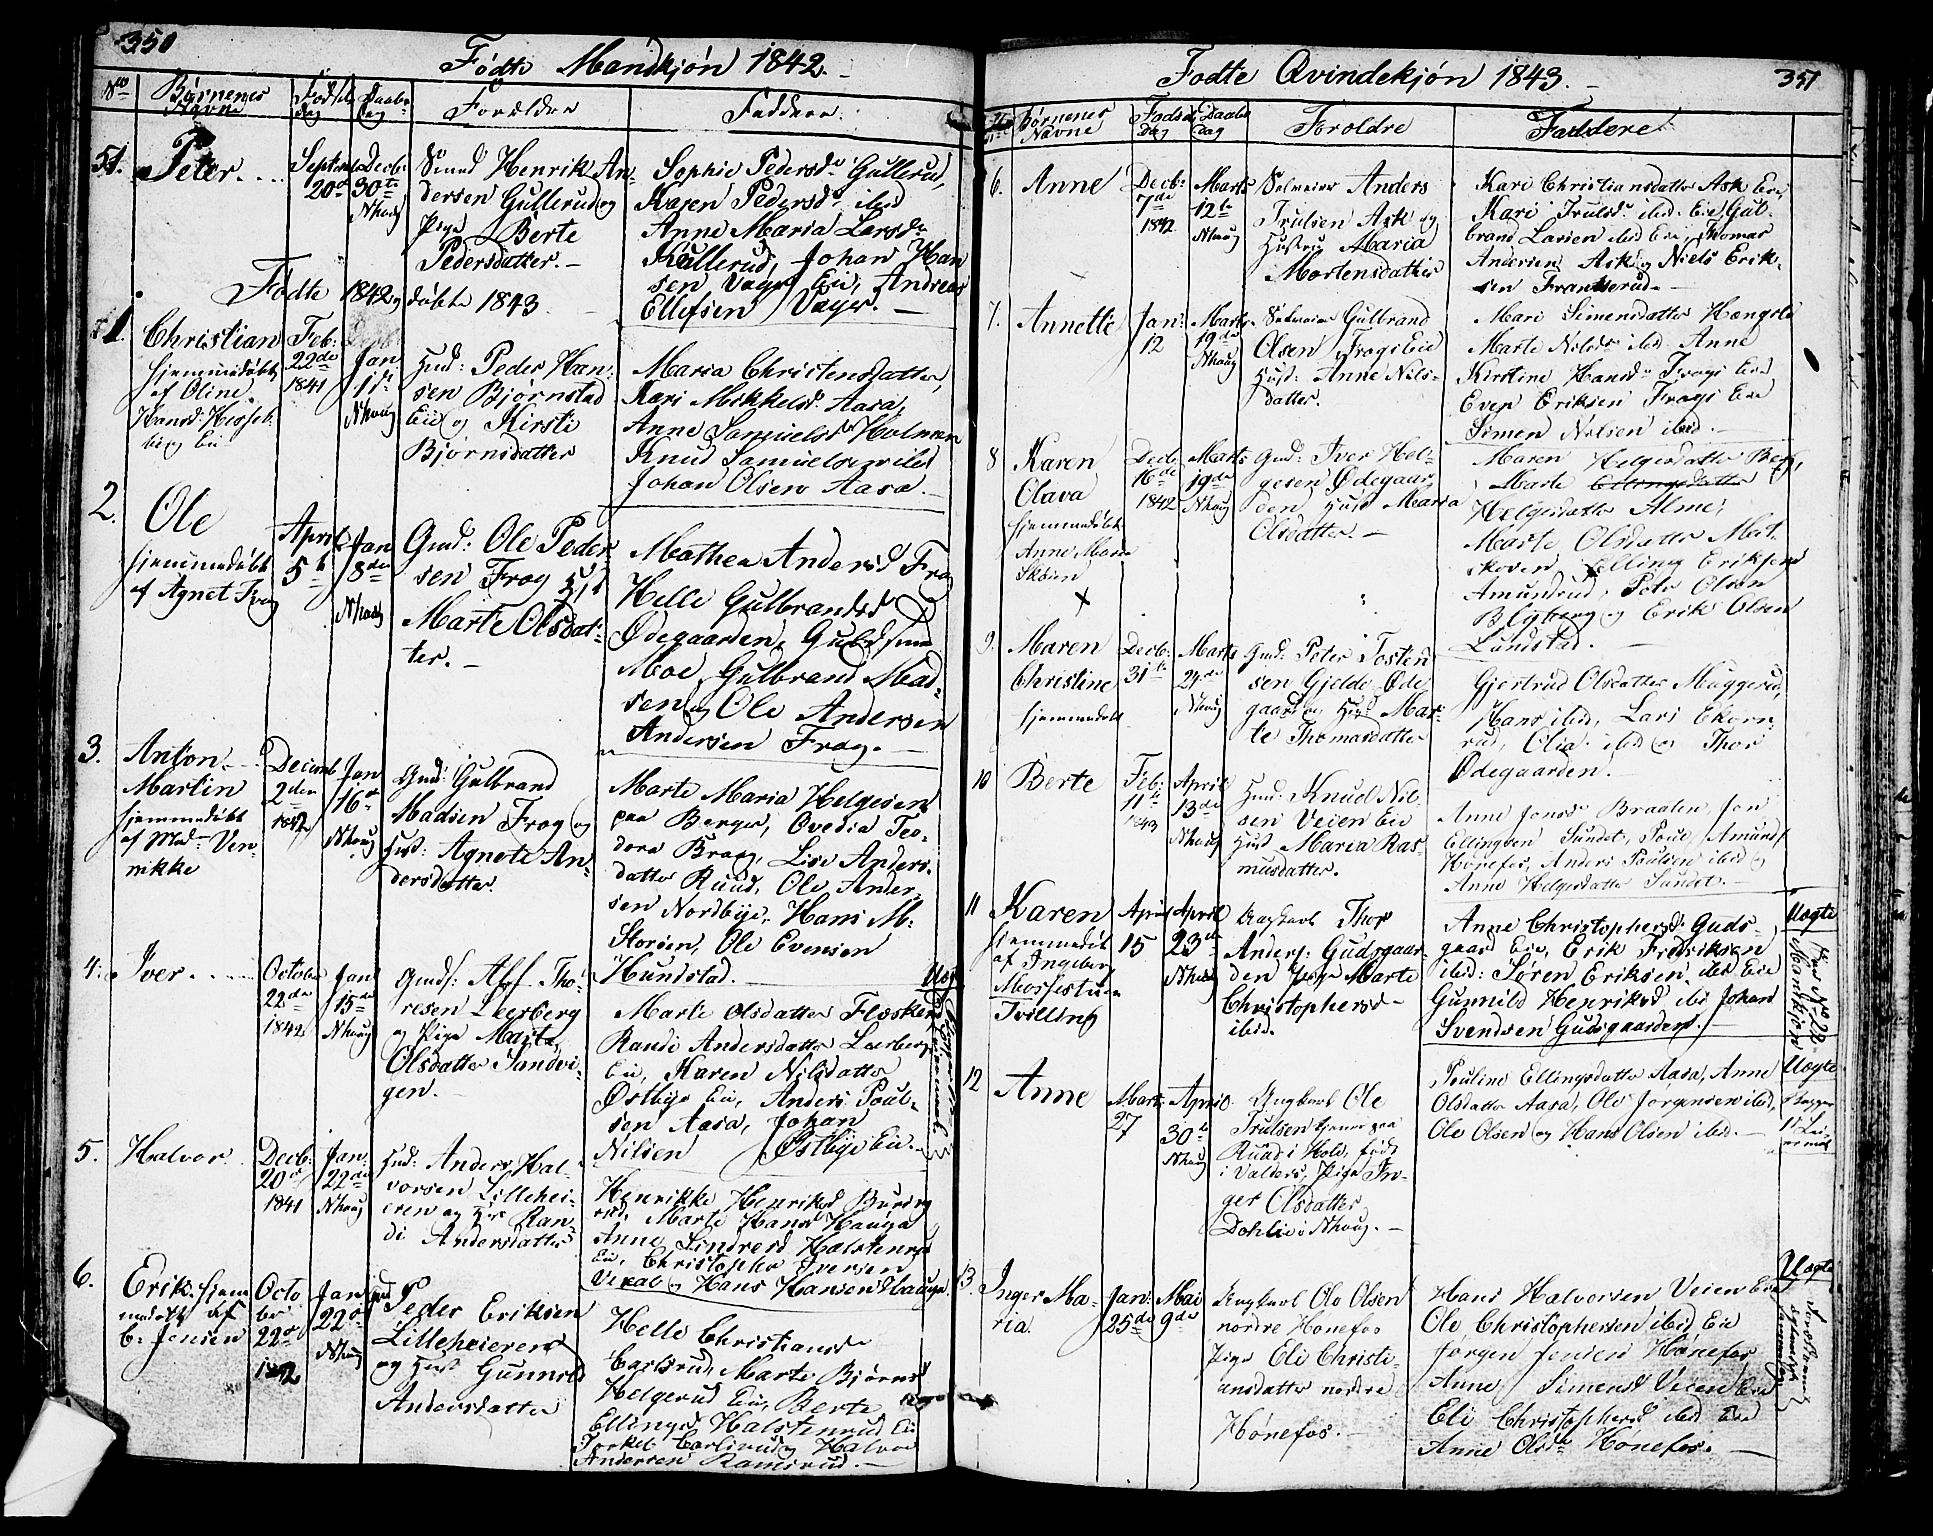 350
Fødte Mandkjøn 1842.
No Børnenes Navne Fødsels Dag Daabs Dag Forældre Faddere
51. Peter. Septembr 20de Decbr 30te Nhaug
Henrik An-
dersen Gullerud og
Pige Berte
Pedersdatter.
Sophie Pedersdr Gullerud,
Karen Pedersdr ibid
Anne Maria Larsdr
Kullerud, Johan Han
sen Vager Eie, Andreas
Ellefsen Vager.
Fødte 1842 og døbte 1843
1. Christian
hjemmedøbt
af Oline
Hansd.
Eie
Feb: 22de 1841
Jan 1ste Nhaug
Huusd: Peder Han-
sen Bjørnstad
Eie og Kirsti
Bjørnsdatter
Maria Christensdatter,
Kari Mikkelsd. Aasa,
Anne Samuelsd Holmen
Knud Samuelsen ibid
Johan Olsen Aasa.
2. Ole
hjemmedøbt
af Agnet Frog
April 5te
Jan 8de Nhaug
Gmd: Ole Peder
sen Frog H:
Marte Olsdat-
ter.
Mathea Andersd Frog
Helle Gulbrandsd
Ødegaarden, Gulb
Moe, Gulbrand Mad-
sen og Ole Andersen
Andersen Frog.
3. Anton
Martin
hjemmedøbt
af Mad. Ven-
nikke
Decemb 2den 1842
Jan 16de Nhaug
Gmd: Gulbrand
Madsen Frog og
Hust: Agnete An-
dersdatter.
Marte Maria Helgesen
paa Berger, Ovedia Teo-
dora Bragg, Lise Anders-
datter Ruud, Ole Ander-
sen Nordbye, Hans M.
Storøen, Ole Evensen
Hundstad.
4. Iver
Octobr 22de 1842
Jan 15de Nhaug
Gmd: Alf Tho-
resen Leerberg
og Pige Marta
Olsdatter Sandvi-
gen.
Uægt
Marte Olsdatter Flesker
Randi Andersdatter Leerberg
Eie, Karen Nilsdatter
Østbye Eie, Anders Poul-
sen Aasa, Johan
Nilsen Østbye Eie.
5. Halvor
Decb: 20de 1841
Jan: 22de Nhaug
Huusd: Anders Hal-
vorsen Lillehei-
eren og H: Ran-
di Andersdatter
Henrikke Henriksd Bur
rud, Marte Hansd Hauga
Anne Lindresd Halstenrud
Eie, Christopher Iversen
Vexal og Hans Hansen Hauga.
6. Erik hjem
medøbt af
C: Jensen
Octo
ber
22de
1842
Jan 22de Nhaug
Peder Eriksen
Lilleheieren
og Hust Gunnild
Andersdatter
Helle Christiansd
Carlsrud, Marte Bjørnsd
Helgerud Eie, Berte
Ellingsd Halstenrud Eie
Torkel Carlsrud og Halvor
Andersen Ramsrud.
351
Fødte Qvindekjøn 1843.
Børnenes Navne Fødsels Dag Daabs Dag Foroldre Faddere
6. Anne
Decb: 7de 1842
Marts 12te Nhaug
Selveier Anders
Trulsen Ask og
Hustru Maria
Mortensdatter
Kari Christiansdatter Ask Eie
Kari Trulsdr ibid Eie Gul-
brand Larsen ibid Eie, Thomas
Andersen Ask og Niels Erik-
sen Frankerud.
7. Annette
Jan: 12
Marts 19de Nhaug
Selveier Gulbrand
Olsen Frogs Eie
Hust: Anne Nils-
datter.
Mari Simensdatter
Marte Nilsdr ibid Anne
Kirstine Hansdr Frogs Eie
Even Eriksen Frogs Eie
Simen Nilsen ibid.
8 Karen
Olava
hjemmedøbt
Anne Marie
Skøien
Decb 16de 1842
Marts 19de Nhaug
Gmd: Iver Hel-
gesen Ødegaar-
den, Hust Maria
Olsdatter.
Maren Helgesdatter Berg,
Marte Ellingsdatter
Helgesdatter Alme,
Marte Olsdatter Mo
skoven, Elling Eriksen
Amundrud, Peter Olsen
Blyberg og Erik Olsen
Lundstad.
9. Maren
Christine
hjemmedøbt
Decb: 31te
Marts 24de Nhaug
Gmd: Peter Tosten
sen Gjelde Øde
gaard og Hust Mar-
te Thomasdatter
Gjertrud Olsdatter Muggerud,
Hans ibid, Lars Ekorn
rud, Olia ibid og Thor
Ødegaarden.
10 Berte
Feb: 11te 1843
April 13de Nhaug
Huusd: Knud Nil-
sen Veien Eie
Hust Maria Ras-
musdatter.
Anne Jonsd Braaten, Jon
Ellingsen Sundet, Poul Amunds
Hønefos, Anders Poulsen ibid og
Anne Helgesdatter Sundet.
11 Karen
hjemmedøbt
af Ingeborg
Mossestuen
Tvilling
April 15
April 23de Nhaug
Ungkarl Thor
Anders: Gudsgaar-
den Pige Marte
Christophersd
ibid.
Anne Christophersd: Guds-
gaard Eie, Erik Fredriksen
ibid: Søren Eriksen ibid Eie
Gunnild Henriksd ibid Johan
Svendsen Gudsgaarden.
Uægte
No 22
Mandkjøn
12 Anne
Marts: 27
April 30te Nhaug
Ungkarl Ole
Trulsen tjener paa
Ruud i Hole, født
i Valders, Pige In-
ger Olsdatter
Dohlie i Nhaug.
Pouline Ellingsdatter Aasa, Anne
Olsdatter Aasa, Ole Jørgensen ibid,
Ole Olsen og Hans Olsen ibid.
Uægte
13. Inger Ma-
ria.
Jan: 25de
Mai 9de
Ungkarl Ole Olsen
nordre Hønefos
Pige Eli Christi-
ansdatter nordre
Hønefos.
Hans Halvorsen Veien Eie
Ole Christophersen ibid Eie
Jørgen Jensen Hønefos
Anne Simensd Veien Eie
Eli Christophersd ibid Eie
Anne Olsdr Hønefos.
Uægte